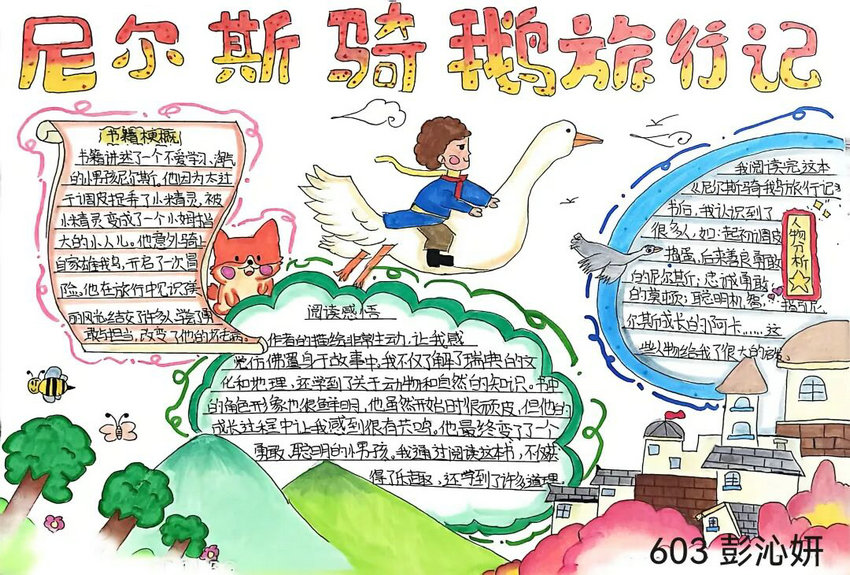 尼尔斯骑鹅旅行记
书籍梗概
书籍讲述了一个不爱学习、淘气
的小男孩尼尔斯。他因为太过
于调皮捉弄了小精灵，被
小精灵变成了一个小拇指
大的小人儿。他意外骑上
自家雄鹅，开启了一次冒
险。他在旅行中见识
丽风光结交许多人学
敢与担当，改变了他的坏
阅读感悟
作者的描绘非常生动，让我感
觉仿佛置身于故事中，我不仅了解了瑞典的文
化和地理，还学到了关于动物和自然的知识。书中
的角色形象也很鲜明，他虽然开始时很顽皮，但他的
成长过程中让我感到很有共鸣。他最终变了了一个
勇敢、聪明的小男孩。我通过阅读这本书，不仅获
得了乐趣，还学到了许多道理。
人物分析
我阅读完这本
《尼尔斯骑鹅旅行记》
书后，我认识到了
很多人，如：起初调皮
捣蛋，后来善良勇敢
的尼尔斯；忠诚勇敢
的莫顿；聪明机智、指引尼
尔斯成长的阿卡……这
些人物给我了很大的
603 彭沁妍